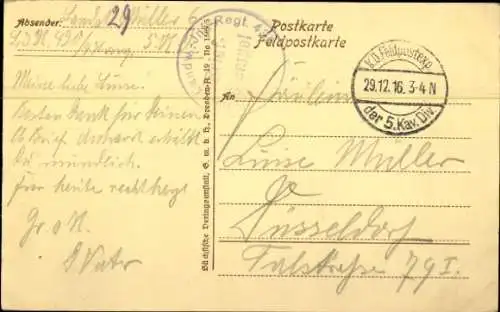 Absender: Landst Müller 6
29
L.I.R. 439
Meine liebe Luise.
Besten Dank für Deinen
lb Brief. Antwort erhältst
Du mündlich.
Für heute recht herzl
Gr. u K.
D Vater
Sächsische Verlagsanstalt, G. m. b. H., Dresden-R. 19. No
Landw. Inf. Regt.
Postkarte
Feldpostkarte
K.D. Feldpostexp.
29.12.16. 3-4 N
der 5. Kav. Div.
An Fräulein
Luise Müller
Düsseldorf
Talstrasse 79 I.